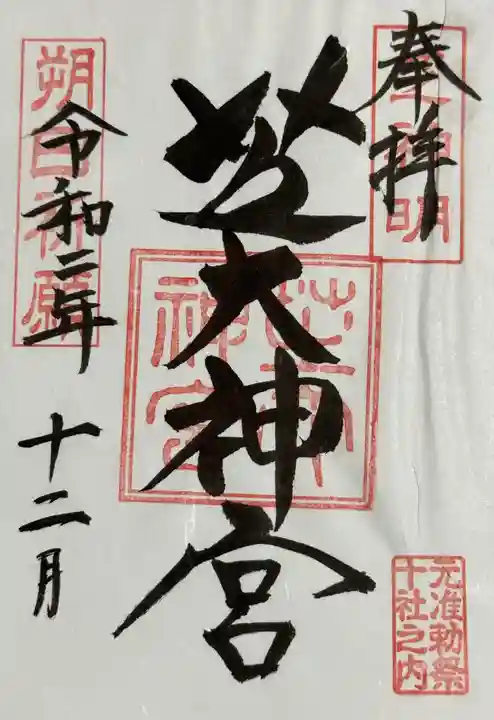 奉拝
芝大神宮
芝大神宮
元准勅祭
十社之内
朔日祈願
令和二年
十二月